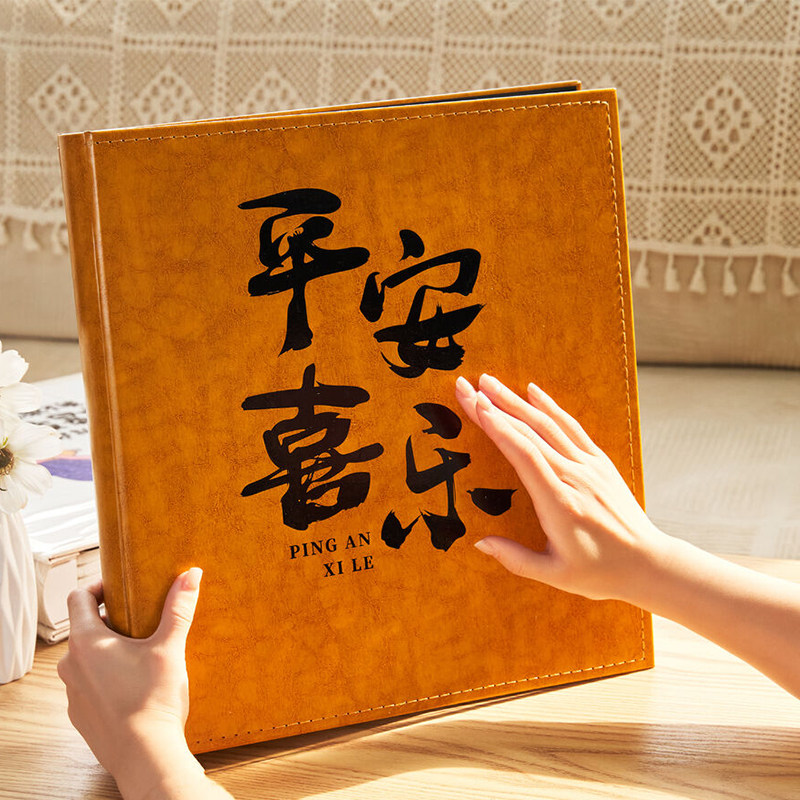 平安
喜乐
PING AN
XI LE